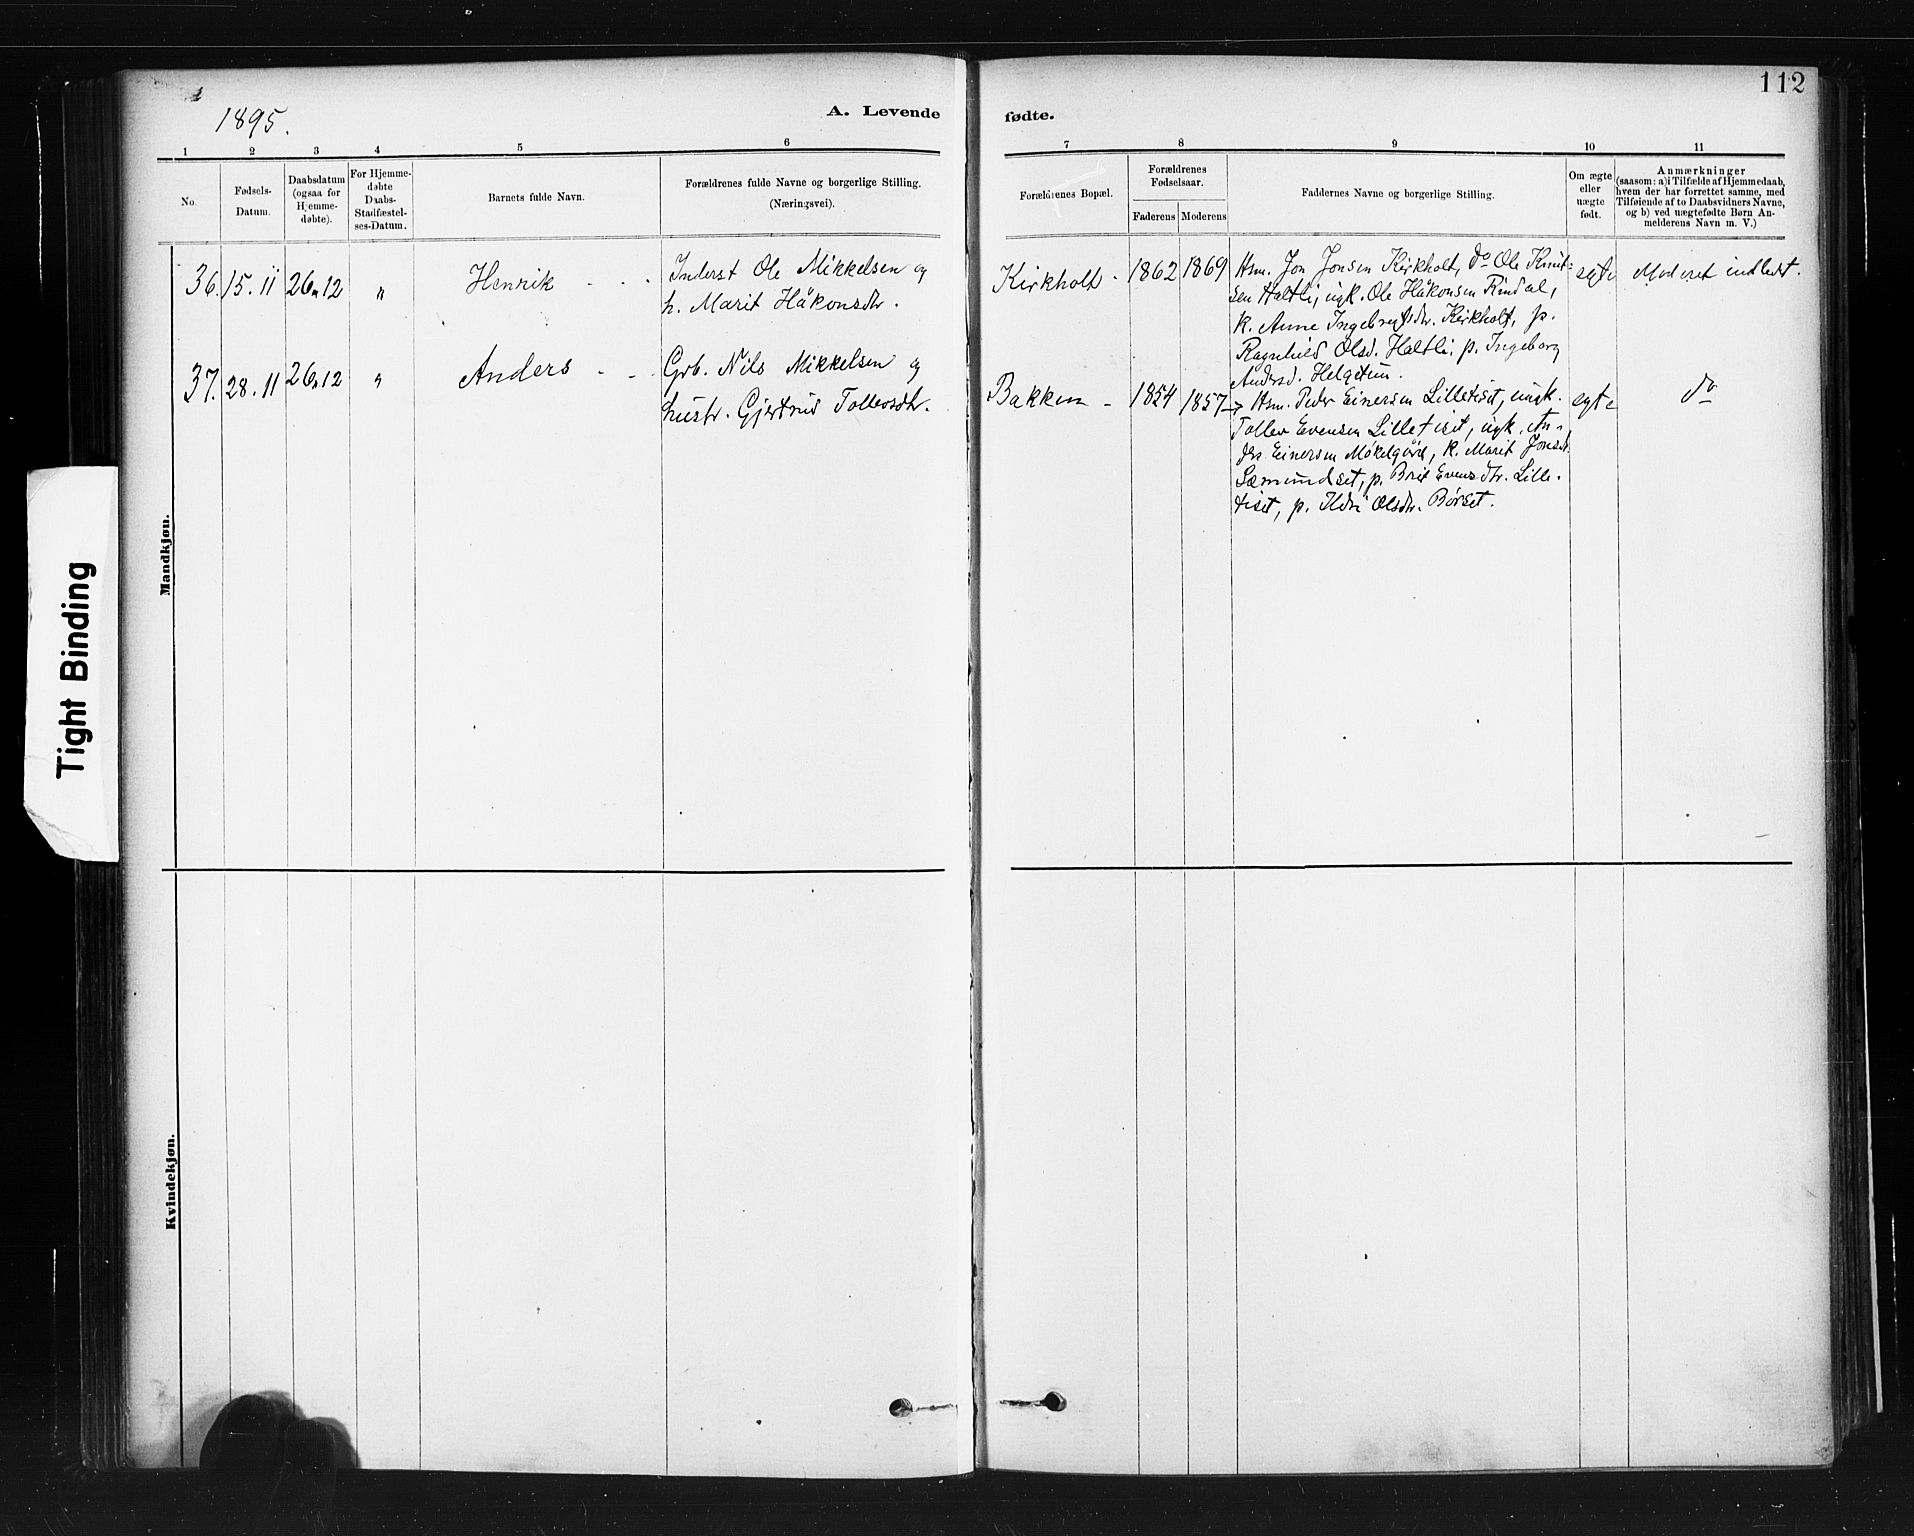 112
1895.
A. Levende
fødte.
1 2 3 4 5 6
7 8 9 10 11
No.
Fødsels-
Datum.
Daabsdatum
(ogsaa for
Hjemme-
døbte).
For Hjemme-
døbte
Daabs-
Stadfæstel-
ses-Datum.
Barnets fulde Navn.
Forældrenes fulde Navne og borgerlige Stilling.
(Næringsvei).
Forældrenes Bopæl.
Forældrenes
Fødselsaar.
Faderens Moderens
Faddernes Navne og borgerlige Stilling.
Om ægte
eller
uægte
født.
Anmærkninger
(saasom: a) i Tilfælde af Hjemmedaab,
hvem der har forrettet samme, med
Tilføiende af to Daabsvidners Navne,
og b) ved uægtefødte Børn An-
melderens Navn m. V.)
Mandkjøn.
36. 15.11 26.12 " Henrik - - -
Inderst Ole Mikkelsen og
h. Marit Håkonsdtr.
Kirkholt - 1862 1869
Hsm. Jon Jonsen Kirkholt, do Ole Knut-
sen Haltli, ugk. Ole Håkonsen Rindal,
k. Anne Ingebregtsdtr. Kirkholt, p.
Ragnhild Olsd. Haltli, p. Ingeborg
Andersd. Helgetun.
egte
Moderet indledet.
37. 28.11 26.12 " Anders - -
Grb. Nils Mikkelsen og
hustr. Gjertrud Tollevsdtr.
Bakken - 1854 1857
Hsm. Peder Einersen Lilletiset, ungk.
Tollev Evensen Lilletiset, ugk. An-
ders Einersen Møkelgård, k. Marit Jonsdt.
Sæmundset, p. Brit Evensdtr. Lille-
tiset, p. Ildri Olsdtr. Børset.
egte
do
Kvindekjøn.
Tight Binding